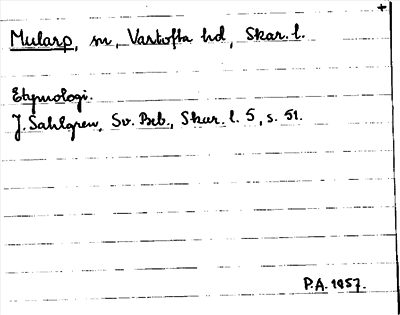 +
Mularp, sn, Vartofta hd, Skar. l.
Etymologi.
J. Sahlgren, Sv. Beb., Skar. l. 5, s. 51.
P.A. 1957.